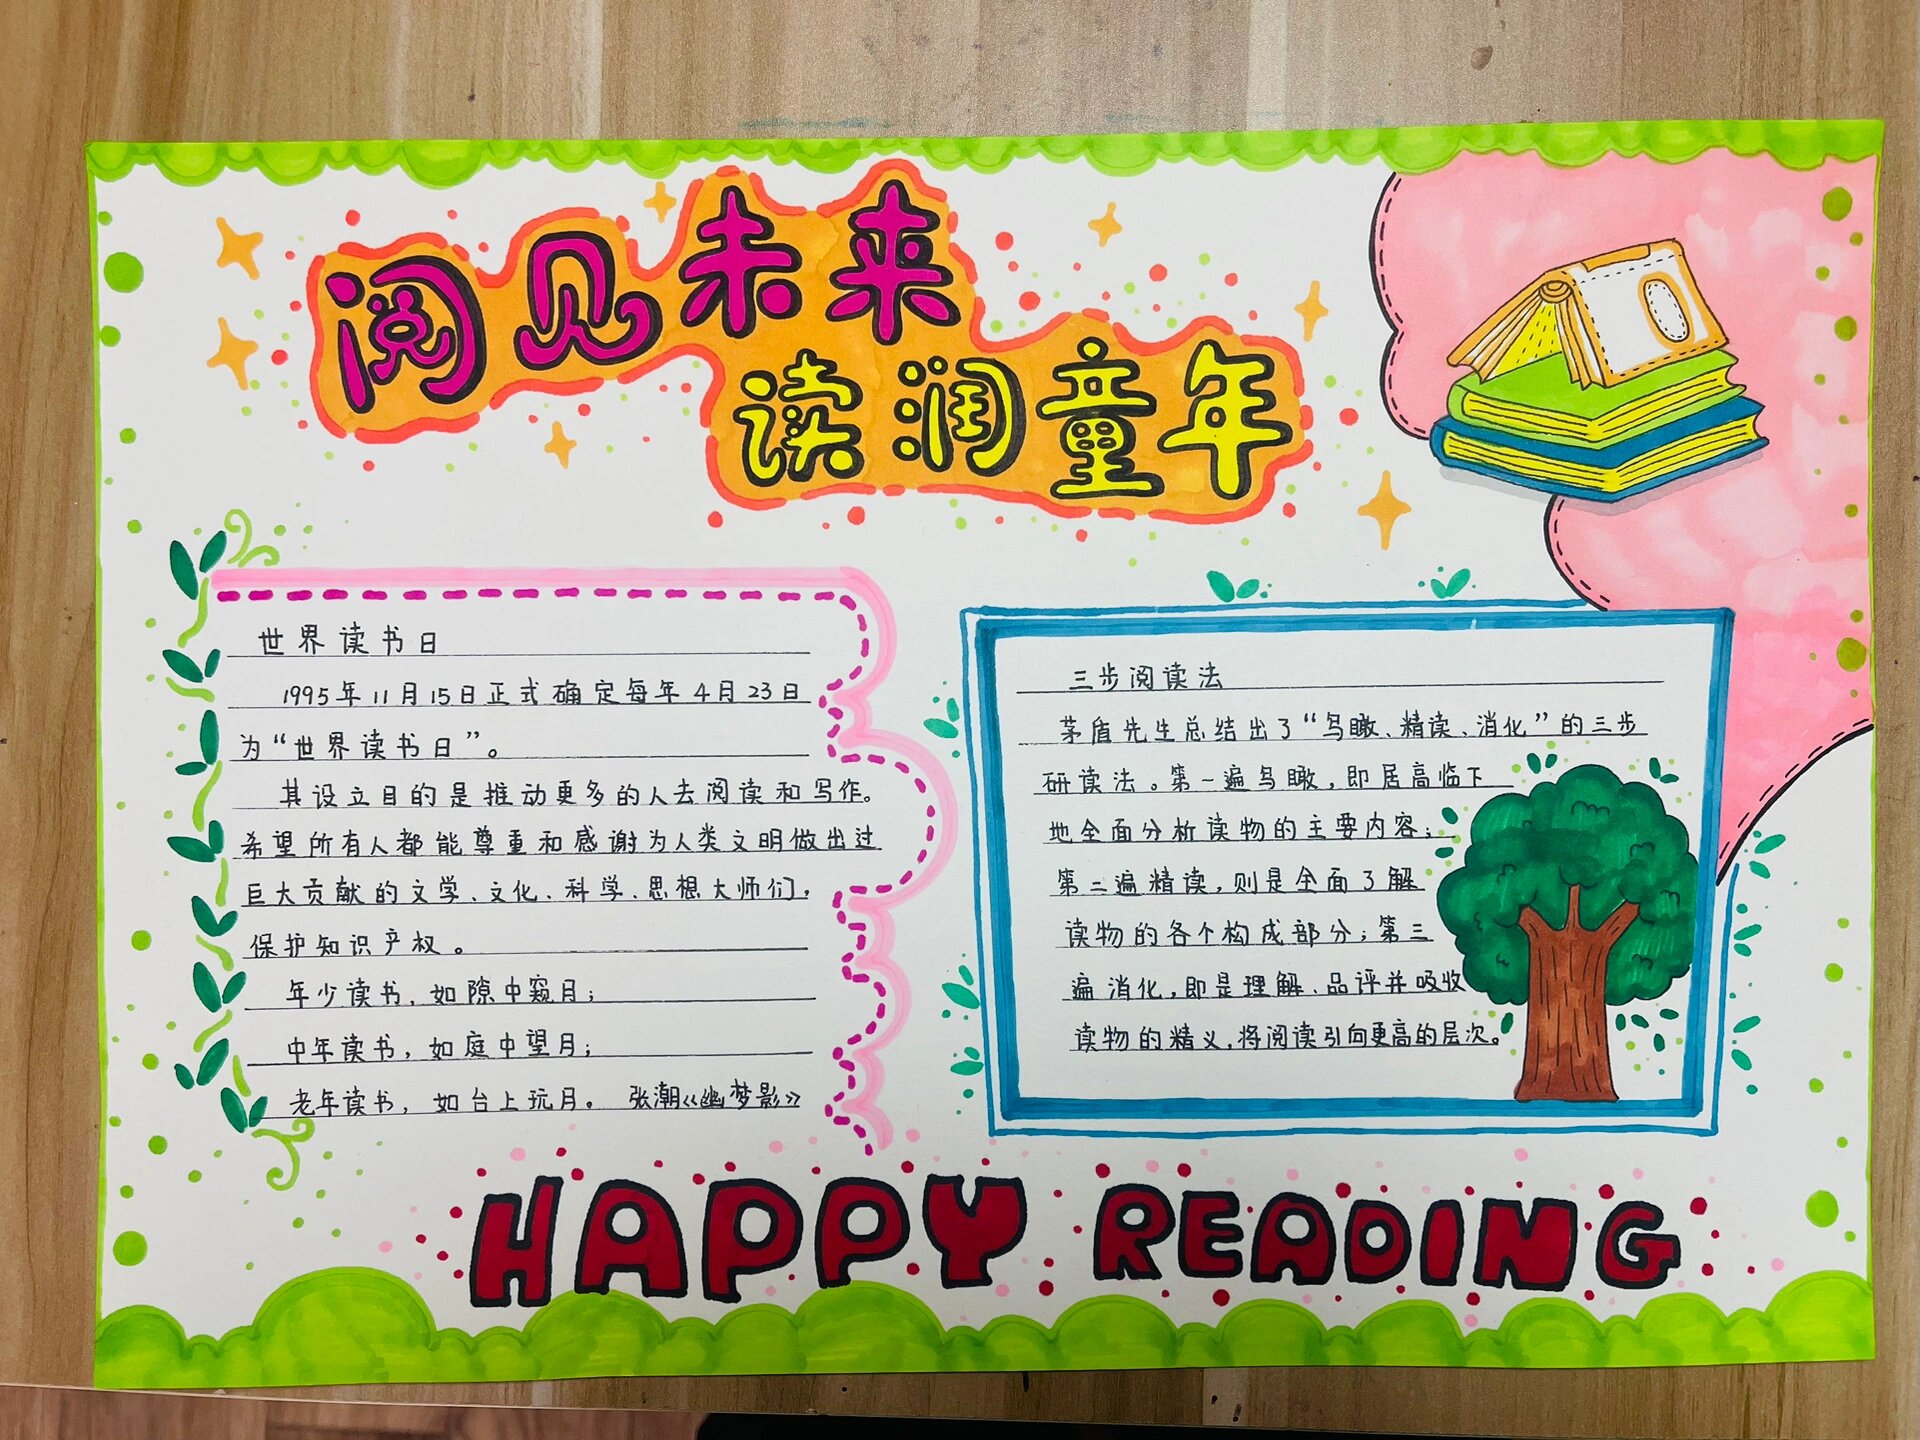 阅见未来
读润童年
世界读书日
1995年11月15日正式确定每年4月23日
为“世界读书日”。
其设立目的是推动更多的人去阅读和写作。
希望所有人都能尊重和感谢为人类文明做出过
巨大贡献的文学、文化、科学、思想大师们，
保护知识产权。
年少读书，如隙中窥月；
中年读书，如庭中望月；
老年读书，如台上玩月。 张潮《幽梦影》
三步阅读法
茅盾先生总结出了“鸟瞰、精读、消化”的三步
研读法。第一遍鸟瞰，即居高临下
地全面分析读物的主要内容；
第二遍精读，则是全面了解
读物的各个构成部分；第三
遍消化，即是理解、品评并吸收
读物的精义，将阅读引向更高的层次。
HAPPY READING